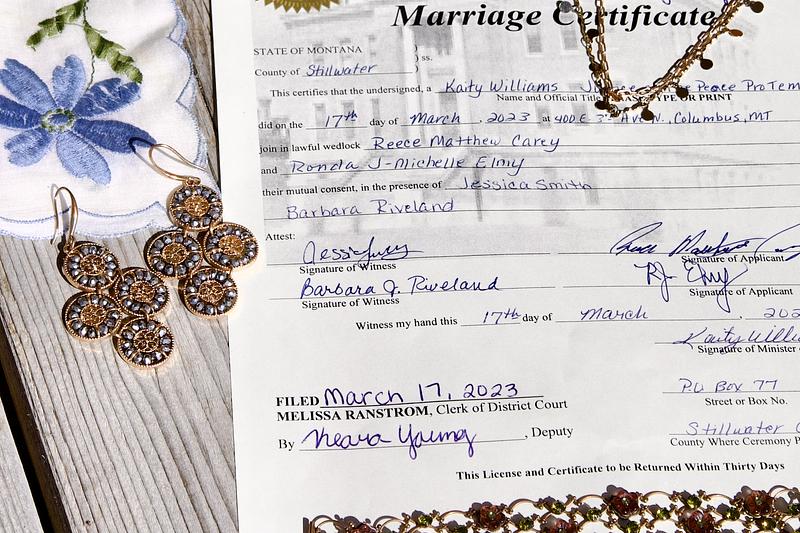 Marriage Certificate
STATE OF MONTANA ) ss.
County of Stillwater )
This certifies that the undersigned, a Kaity Williams Peace ProTem
Name and Official Title TYPE OR PRINT
did on the 17th day of March, 2023 at 400 E. 3rd Ave N., Columbus, MT
join in lawful wedlock Reece Matthew Carey
and Ronda J-Michelle Elmy
their mutual consent, in the presence of Jessica Smith
Barbara Riveland
Attest:
Signature of Witness Signature of Applicant
Barbara J. Riveland RJ Elmy
Signature of Witness Signature of Applicant
Witness my hand this 17th day of March, 202
Kaity Willi
Signature of Minister
FILED March 17, 2023 P.O Box 77
MELISSA RANSTROM, Clerk of District Court Street or Box No.
By Neava Young, Deputy Stillwater C
County Where Ceremony P
This License and Certificate to be Returned Within Thirty Days